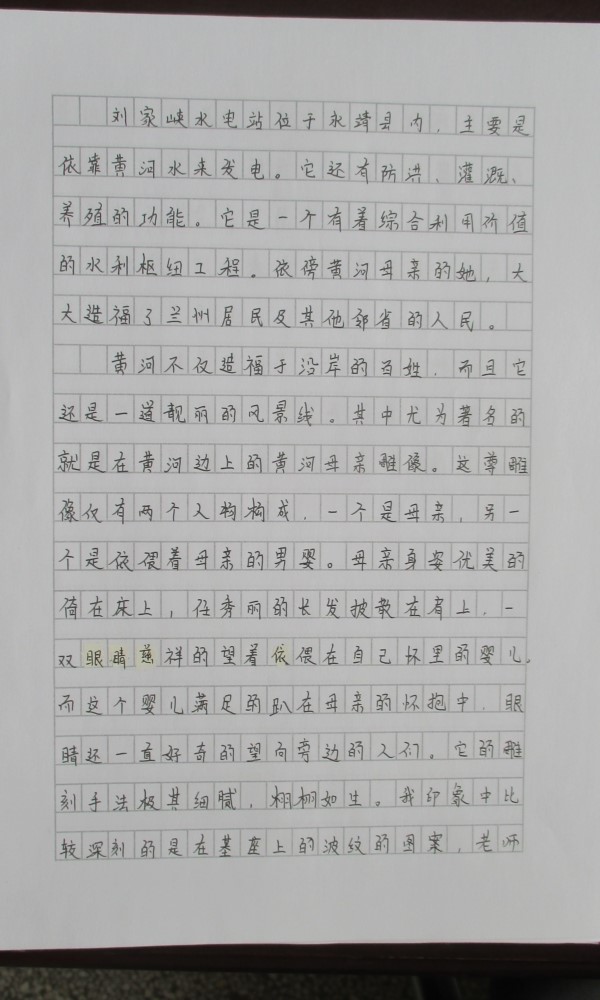 刘家峡水电站位于永靖县内，主要是
依靠黄河水来发电。它还有防洪、灌溉、
养殖的功能。它是一个有着综合利用价值
的水利枢纽工程。依傍黄河母亲的她，大
大造福了兰州居民及其他邻省的人民。
黄河不仅造福于沿岸的百姓，而且它
还是一道靓丽的风景线。其中尤为著名的
就是在黄河边上的黄河母亲雕像。这尊雕
像仅有两个人物构成，一个是母亲，另一
个是依偎着母亲的男婴。母亲身姿优美的
倚在床上，任秀丽的长发披散在肩上，一
双眼睛慈祥的望着依偎在自己怀里的婴儿，
而这个婴儿满足的趴在母亲的怀抱中，眼
睛还一直好奇的望向旁边的人们。它的雕
刻手法极其细腻，栩栩如生。我印象中比
较深刻的是在基座上的波纹的图案，老师